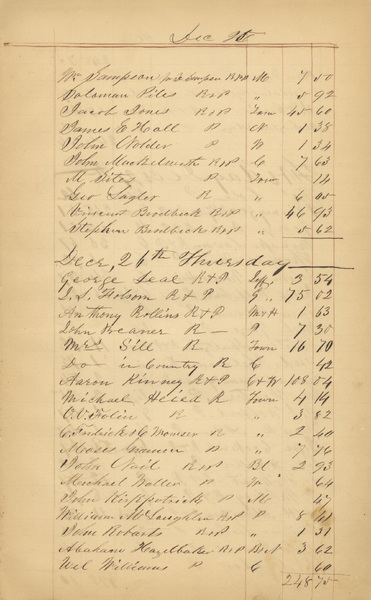 Dec 25
Wm Sampson R&P M 7 50
Solomon Piles R&P " 5 92
Jacob Jones R&P Town 45 60
James E Hall P N 1 38
John Holder P N 1 34
John R&P C 7 63
M Sites P Town 14
Geo Lagler R " 6 00
Vincent Brodbeck R&P " 46 93
Stephen Brodbeck R&P " 5 62
Dece, 26th Thursday
George Seal R&P Jeff 3 54
J. S. Folsom R & P G " 75 02
Anthony Rollins R&P M&H 1 63
John Preaner R P 7 30
Mrs Sill R Town 16 70
Do in Country R C 42
Aaron Kinney R&P C&W 108 04
Michael R Town 4 14
O. V. R " 3 82
& C R " 2 40
Moses P " 7 76
John Vail R&P Bl 2 93
Michael Waller P W 64
John Kirkpatrick P M 47
William McLaughlin R&P P 8 41
John Robarts R&P " 1 31
Abraham Hazelbaker R&P Bent 3 62
Wel Williams P C 60
248 75